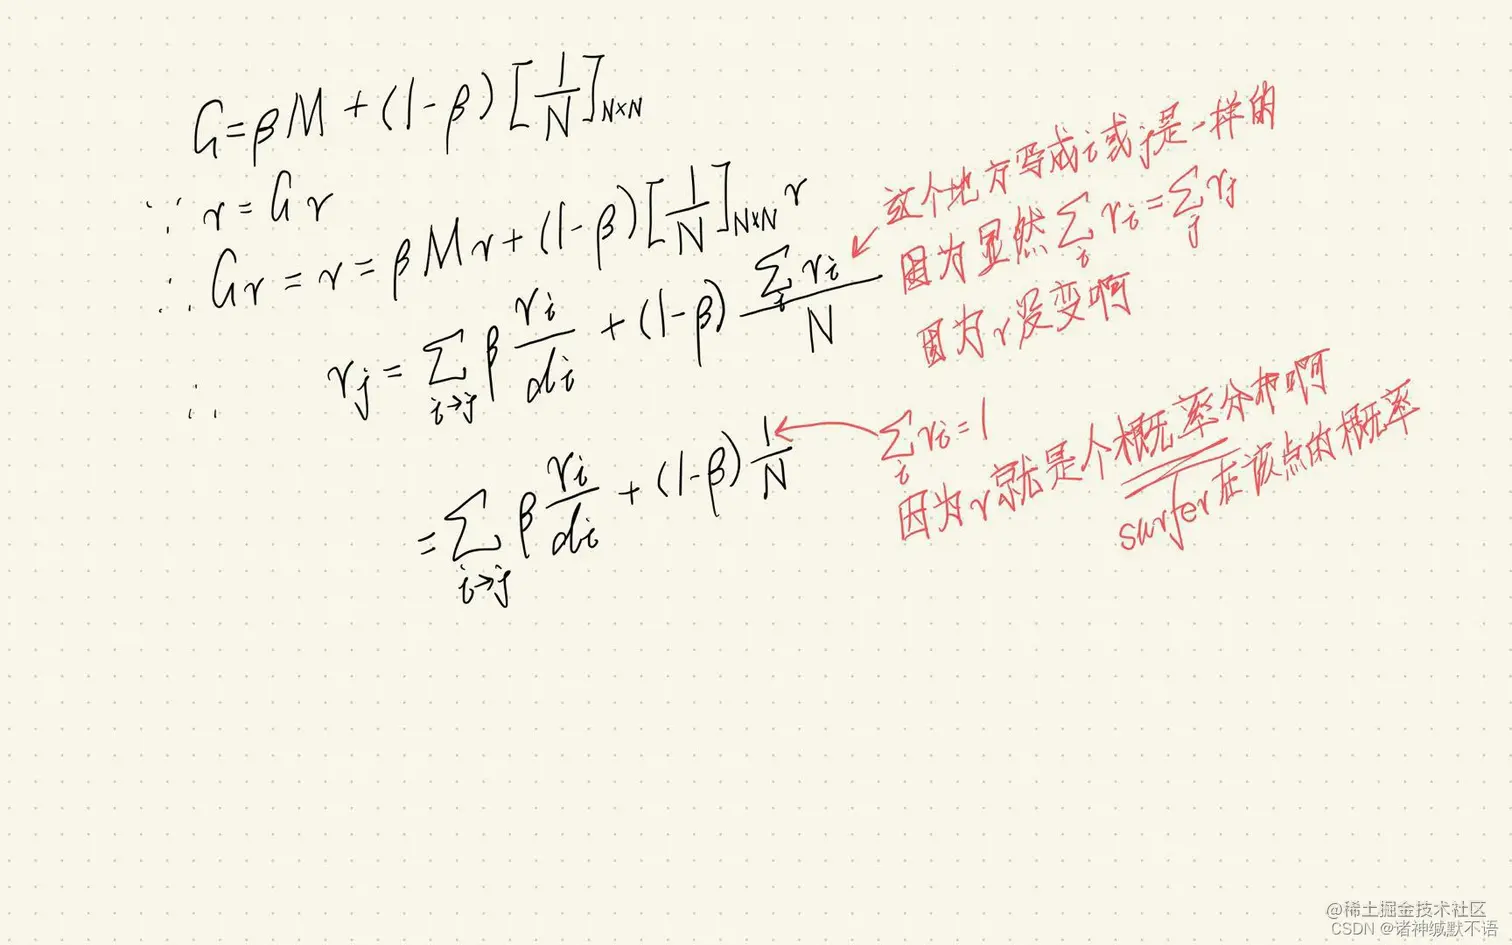 G=βM+(1-β)[1/N]N×N
∵ r=Gr
∴ Gr=r=βMr+(1-β)[1/N]N×N r
∴ rj=∑i→j β ri/di+(1-β) ∑i ri/N
=∑i→j β ri/di+(1-β) 1/N
这个地方写成i或j是一样的
因为显然∑i ri=∑j rj
因为r没变啊
∑i ri=1
因为r就是个概率分布啊
surfer在该点的概率
@稀土掘金技术社区
CSDN @诸神缄默不语